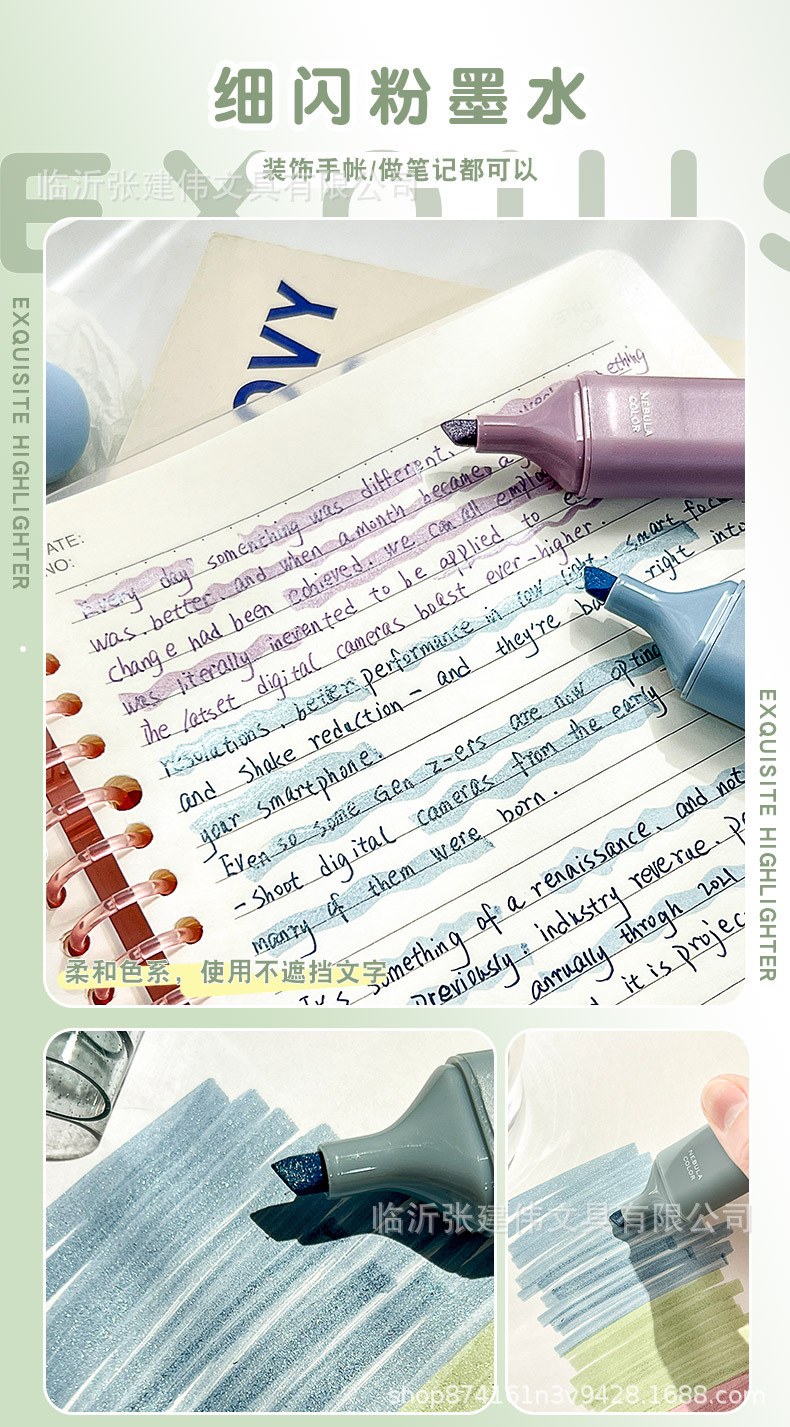 细闪粉墨水
EXQUIS
装饰手帐/做笔记都可以
临沂张建伟文具有限公司
EXQUISITE HIGHLIGHTER
OVY
ATE:
NO:
ething
NEBULA
COLOR
Every day something was different.
was better, and when a month became a
change had been cohieved. we can all emplo
was literally inevented to be applied to e
the latset digital cameras boast ever-higher.
resolutions, beiter performance in low light, smart foc
and shake reduction - and they're ba right into
your smartphone.
Even so some Gen z-ers are now opting
-shoot digital cameras from the early
many of them were born.
something of a renaissance, and not
previously. industry reverue.
anrually throgh 2021
it is projec
柔和色系，使用不遮挡文字
EXQUISITE HIGHLIGHTER
NEBULA
COLOR
临沂张建伟文具有限公司
shop874161n3v9428.1688.com